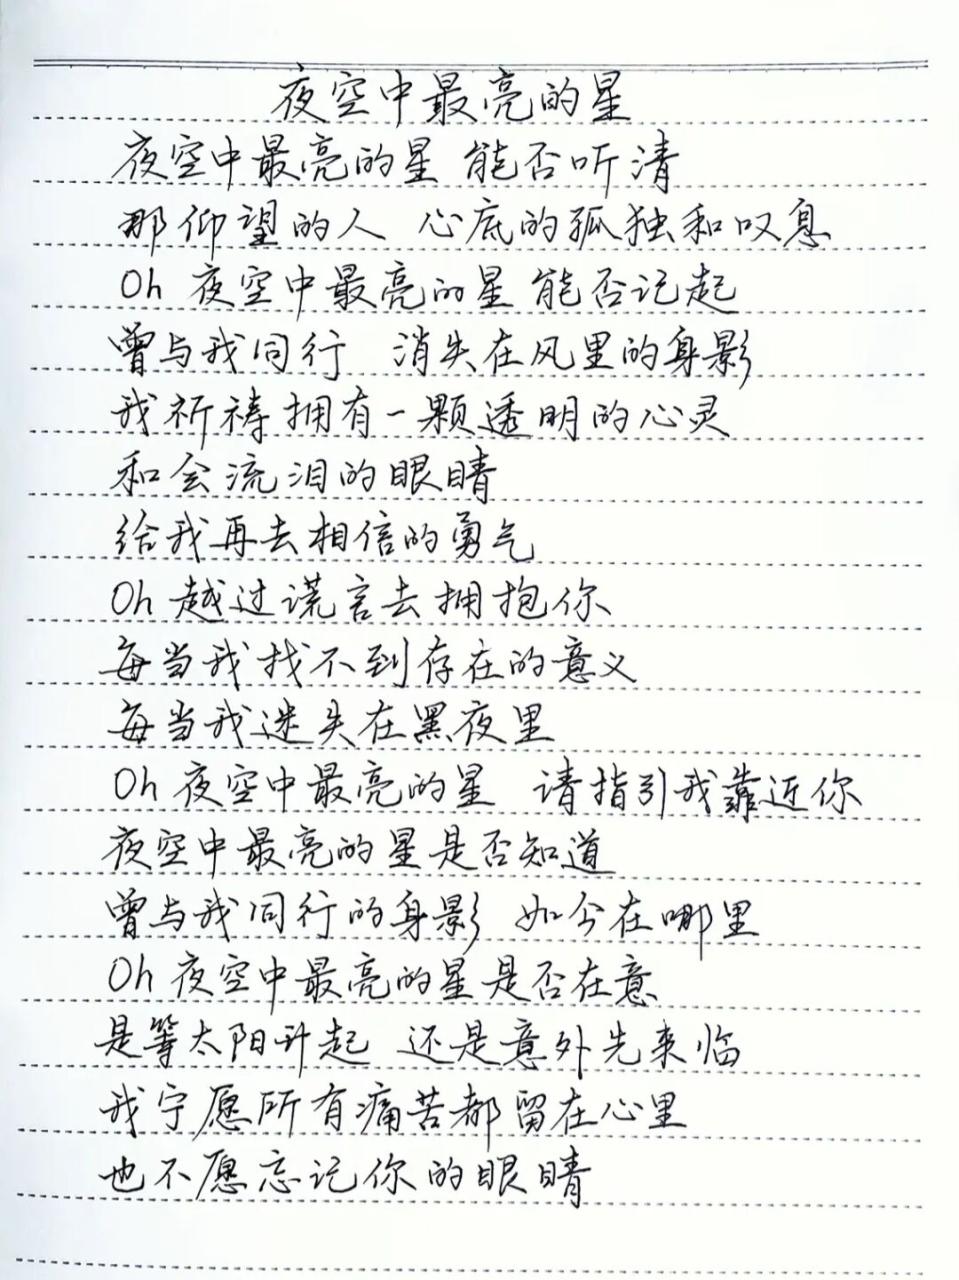 夜空中最亮的星
夜空中最亮的星 能否听清
那仰望的人 心底的孤独和叹息
Oh 夜空中最亮的星 能否记起
曾与我同行 消失在风里的身影
我祈祷拥有一颗透明的心灵
和会流泪的眼睛
给我再去相信的勇气
Oh 越过谎言去拥抱你
每当我找不到存在的意义
每当我迷失在黑夜里
Oh 夜空中最亮的星 请指引我靠近你
夜空中最亮的星是否知道
曾与我同行的身影 如今在哪里
Oh 夜空中最亮的星是否在意
是等太阳升起 还是意外先来临
我宁愿所有痛苦都留在心里
也不愿忘记你的眼睛